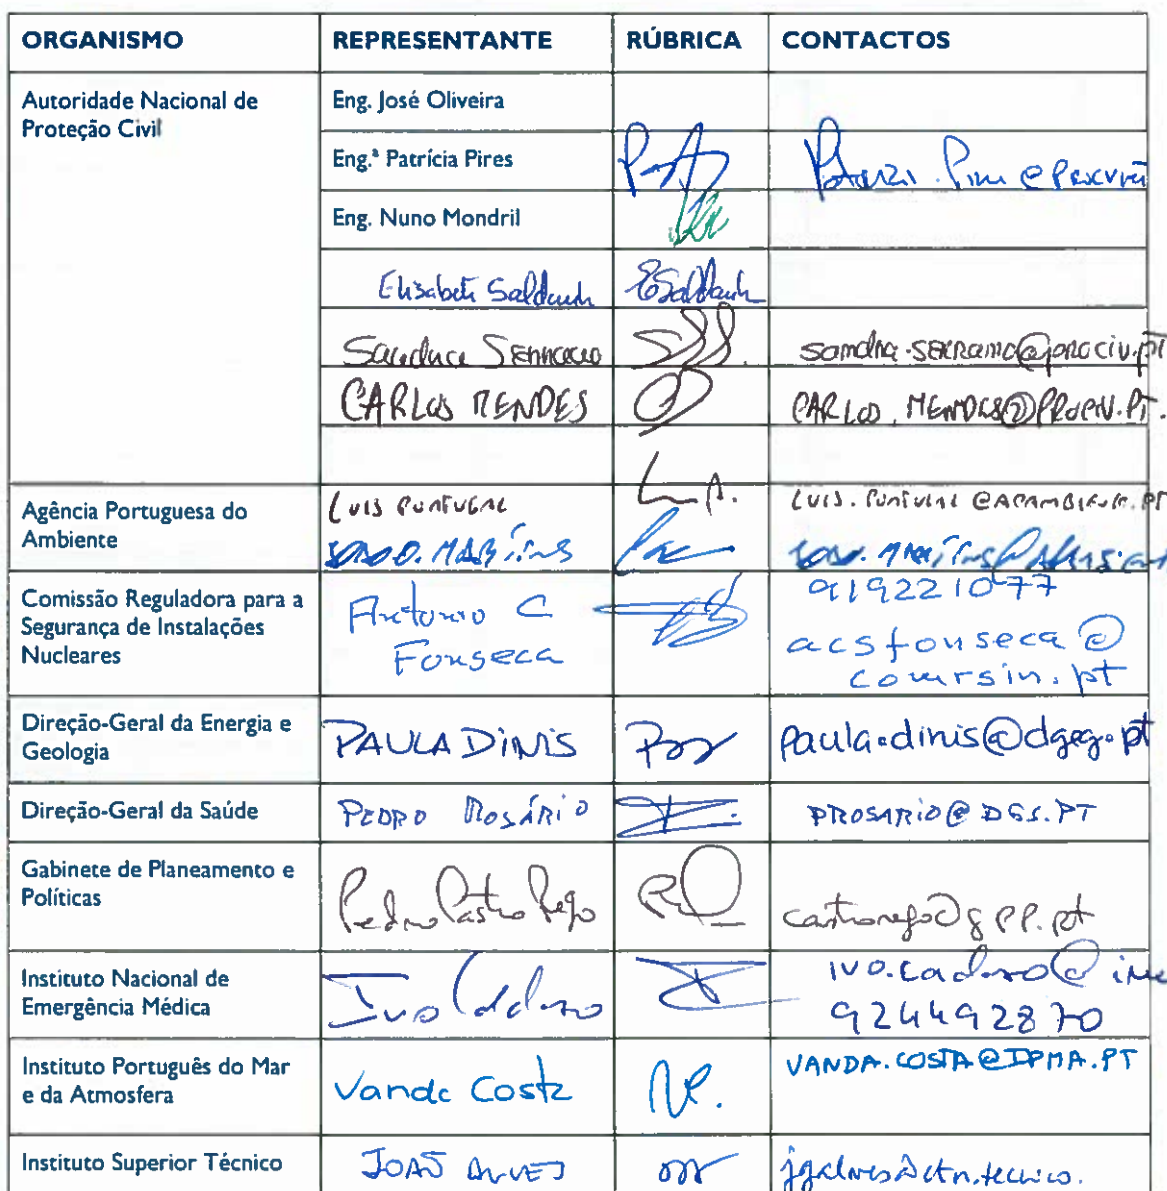 ORGANISMO REPRESENTANTE RÚBRICA CONTACTOS
Autoridade Nacional de
Proteção Civil
Eng. José Oliveira
Eng.ª Patrícia Pires
Eng. Nuno Mondril
Elisabete Saldanh ESaldanh
Sandra Serrano sandra.serrano@prociv.pt
CARLOS MENDES CARLOS.MENDES@PROCIV.PT.
Agência Portuguesa do
Ambiente
LUIS PORTUGAL L.P. LUIS.PORTUGAL@APAMBIENTE.PT
Comissão Reguladora para a
Segurança de Instalações
Nucleares
António C
Fonseca
919221077
acsfonseca@
comrsin.pt
Direção-Geral da Energia e
Geologia
PAULA DINIS paula.dinis@dgeg.pt
Direção-Geral da Saúde PEDRO ROSÁRIO PROSARIO@DGS.PT
Gabinete de Planeamento e
Políticas
Pedro Castro Rego castrorego@gpp.pt
Instituto Nacional de
Emergência Médica
Ivo Cardoso ivo.cardoso@ine
924492870
Instituto Português do Mar
e da Atmosfera
Vanda Costa VANDA.COSTA@IPMA.PT
Instituto Superior Técnico JOÃO ALVES jgalves@ctn.tecnico.